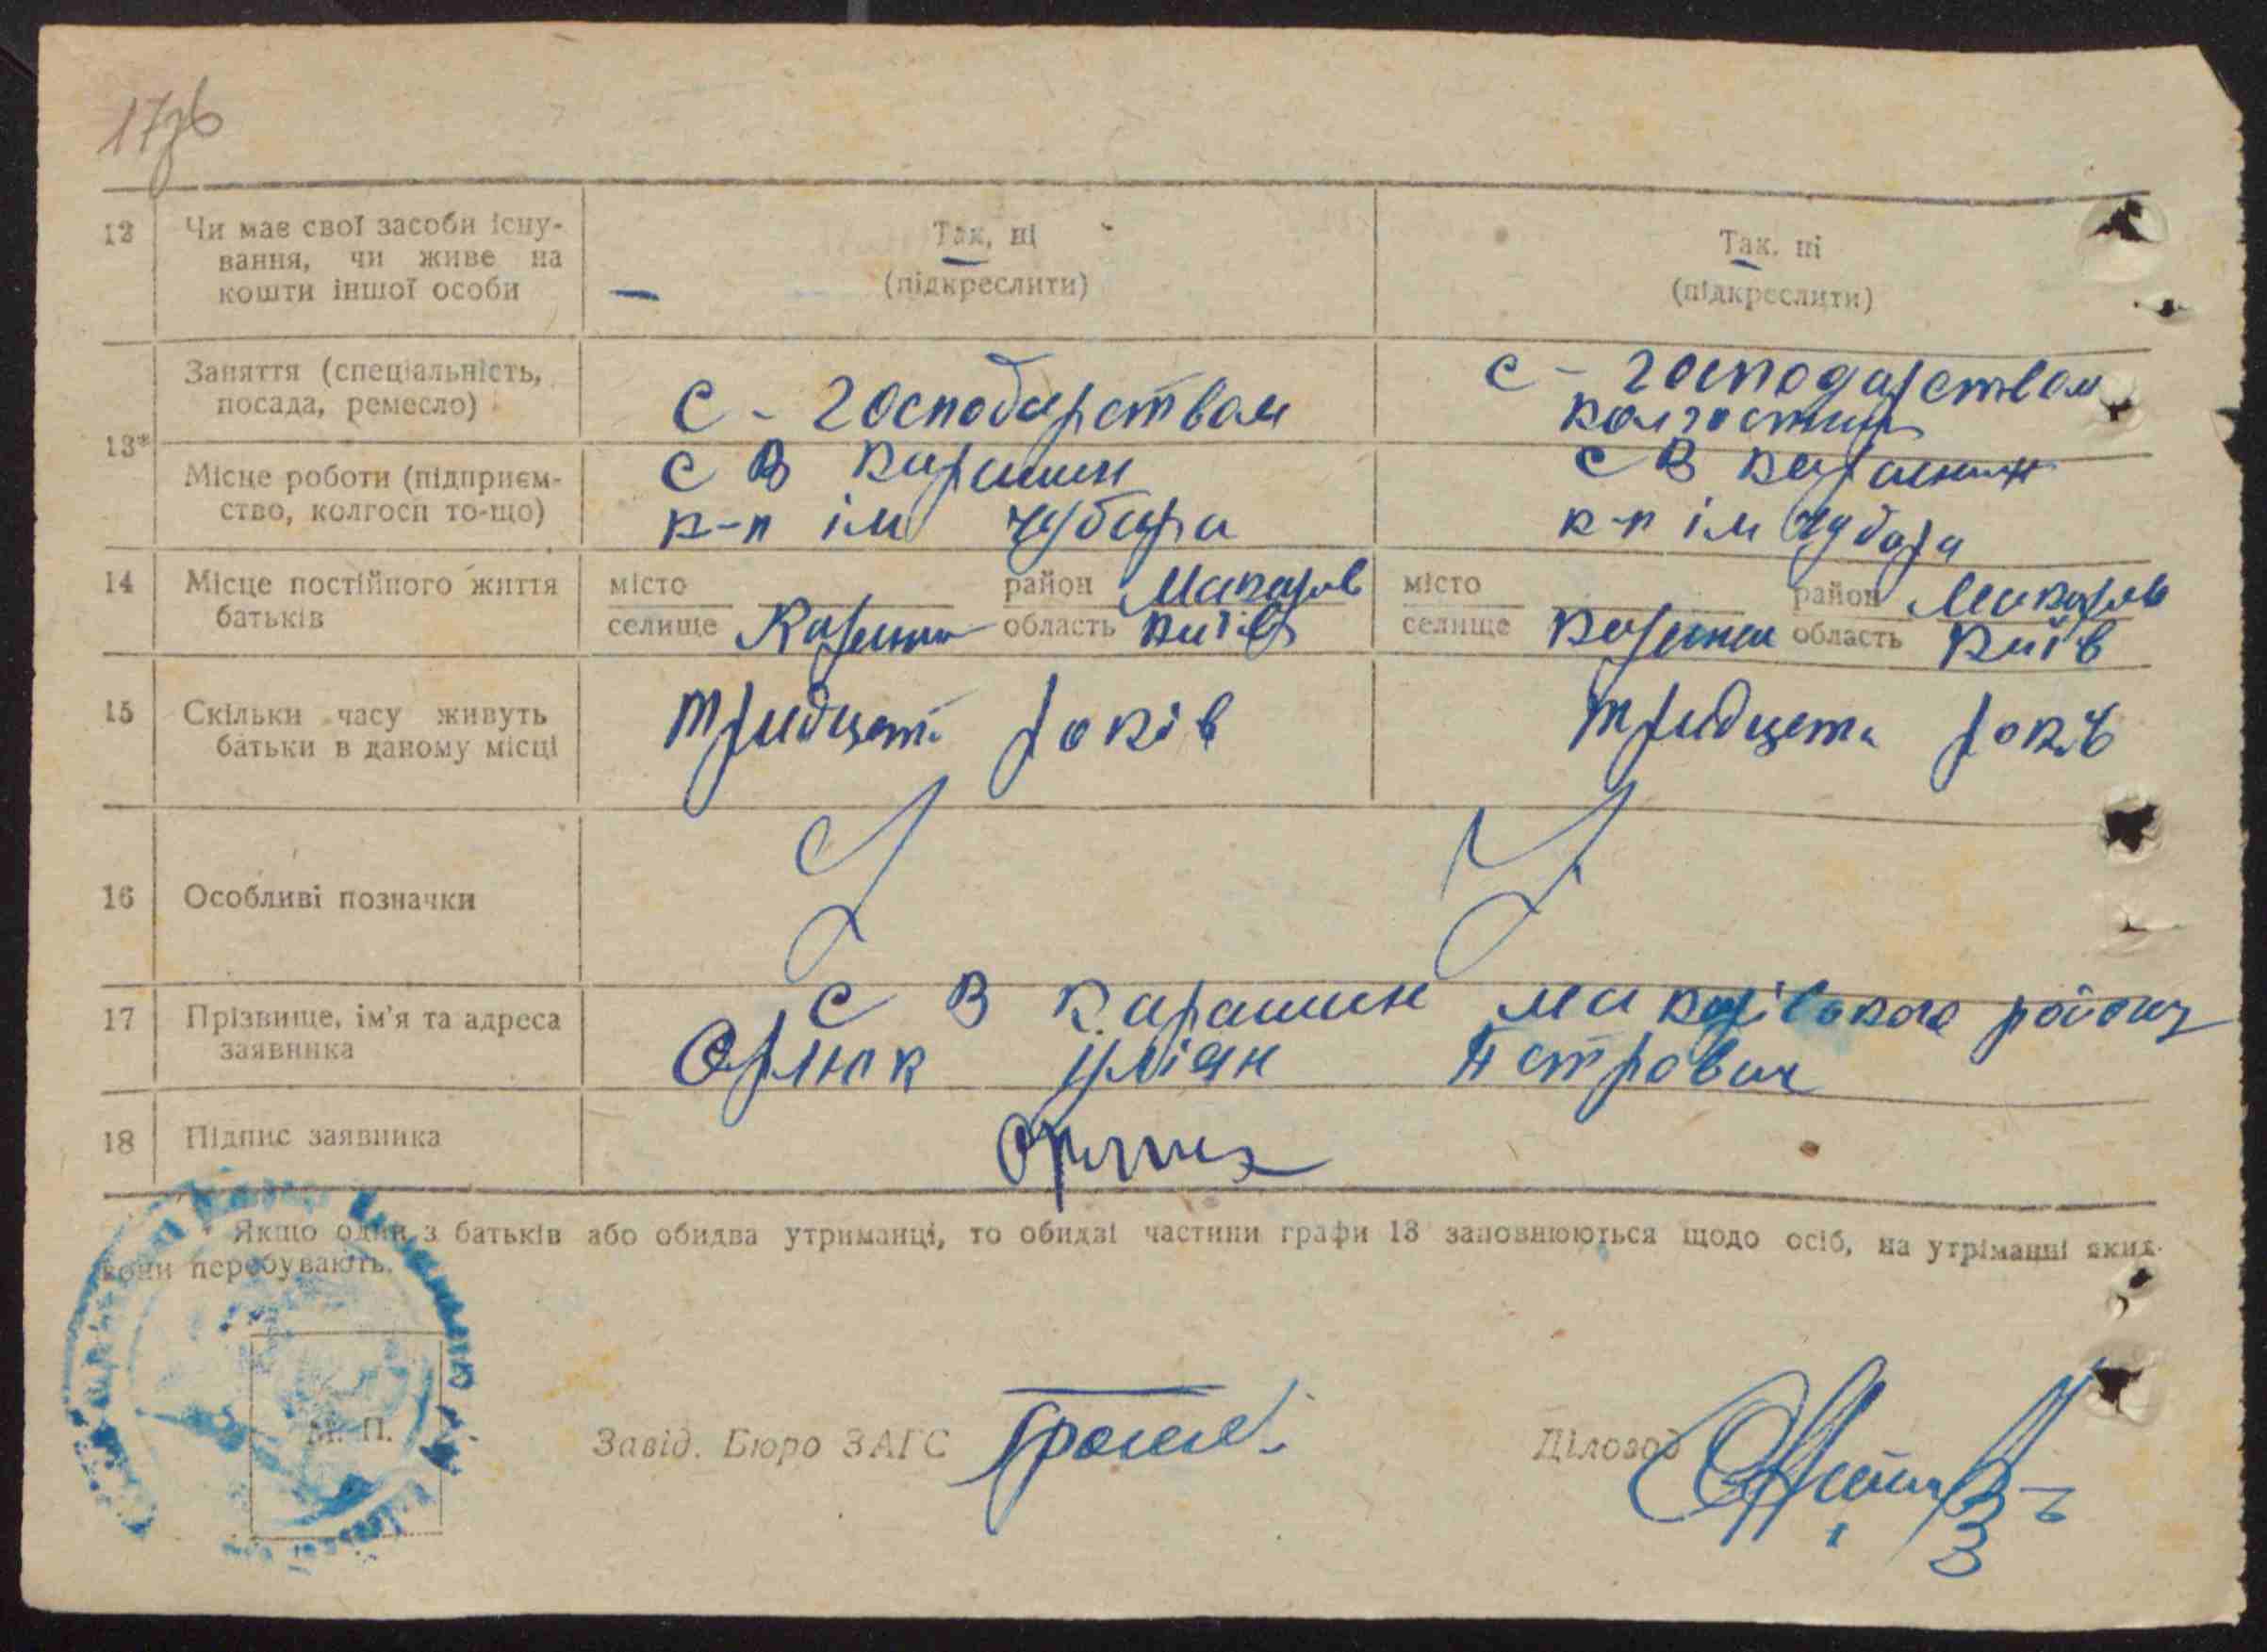 17зб
12 Чи має свої засоби існу- Так, ні Так, ні
вання, чи живе на (підкреслити) (підкреслити)
кошти іншої особи –
13* Заняття (спеціальність, С - господарством с - господарством
посада, ремесло) колгоспник
Місце роботи (підприєм- С В Карашин с В Карашин
ство, колгосп то-що) к-п ім Чубаря к-п ім Чубаря
14 Місце постійного життя місто район Макарів місто район Макарів
батьків селище Карашин область Київ селище Карашин область Київ
15 Скільки часу живуть тридцеть років тридцеть років
батьки в даному місці
16 Особливі позначки
17 Прізвище, ім'я та адреса с В Карашин Макарівского району
заявника Орлюк Уліян Петрович
18 Підпис заявника Орлюк
* Якщо один з батьків або обидва утриманці, то обидві частини графи 13 заповнюються щодо осіб, на утріманні яких
вони перебувають.
М. П. Завід. Бюро ЗАГС Діловод